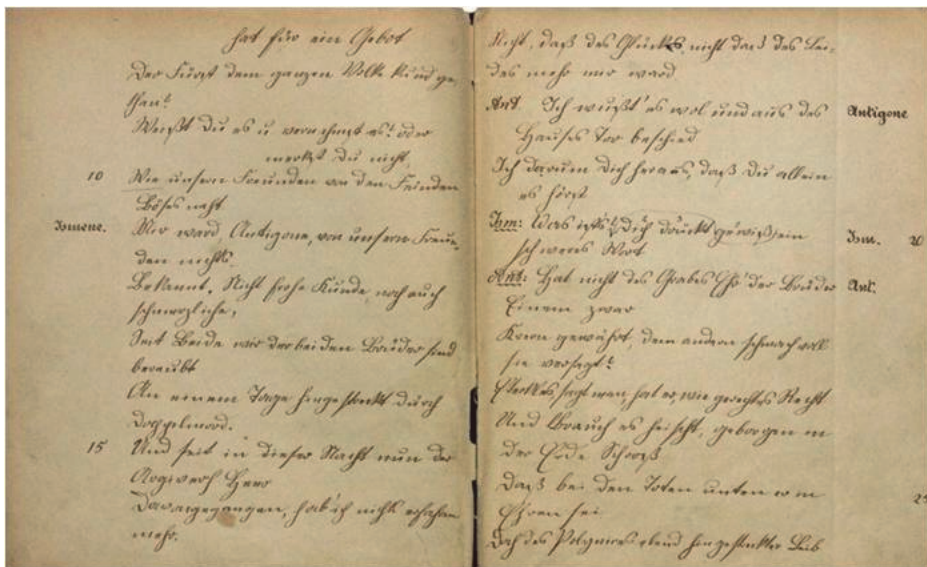 hat für ein Gebot
Der Fürst dem ganzen Volke kund ge-
than?
Weißt du es u vernahmst es? oder
merkst du nicht,
10 Wie unsern Freunden von den Feinden
Böses naht
Ismene. Mir ward, Antigone, von unsern Freun-
den nichts
Bekannt. Nicht frohe Kunde, noch auch
schmerzliche,
Seit Beide wir der beiden Brüder sind
beraubt
An einem Tage hingestreckt durch
Doppelmord.
15 Und seit in dieser Nacht nun der
Argiver Heer
Davongegangen, hab' ich nichts erfahren
mehr.
Nicht, daß des Glücks, nicht daß des Lei-
des mehr mir ward
Ant. Ich wußt' es wol und aus des Antigone
Hauses Tor beschied
Ich darum Dich heraus, daß Du allein
es hörst
Ism: Was ists? Dich drückt gewiß ein Ism. 20
schweres Wort
Ant: Hat nicht des Grabes Ehr' der Brüder Ant.
Einem zwar
Kreon gewährt, dem andern schmachvoll
sie versagt?
Eteokles, sagt man, hat er, wie gerechtes Recht
Und Brauch es heischt, geborgen in
der Erde Schooß
Daß bei den Toten unten er in
Ehren sei
Doch des Polynices elend hingestreckter Leib